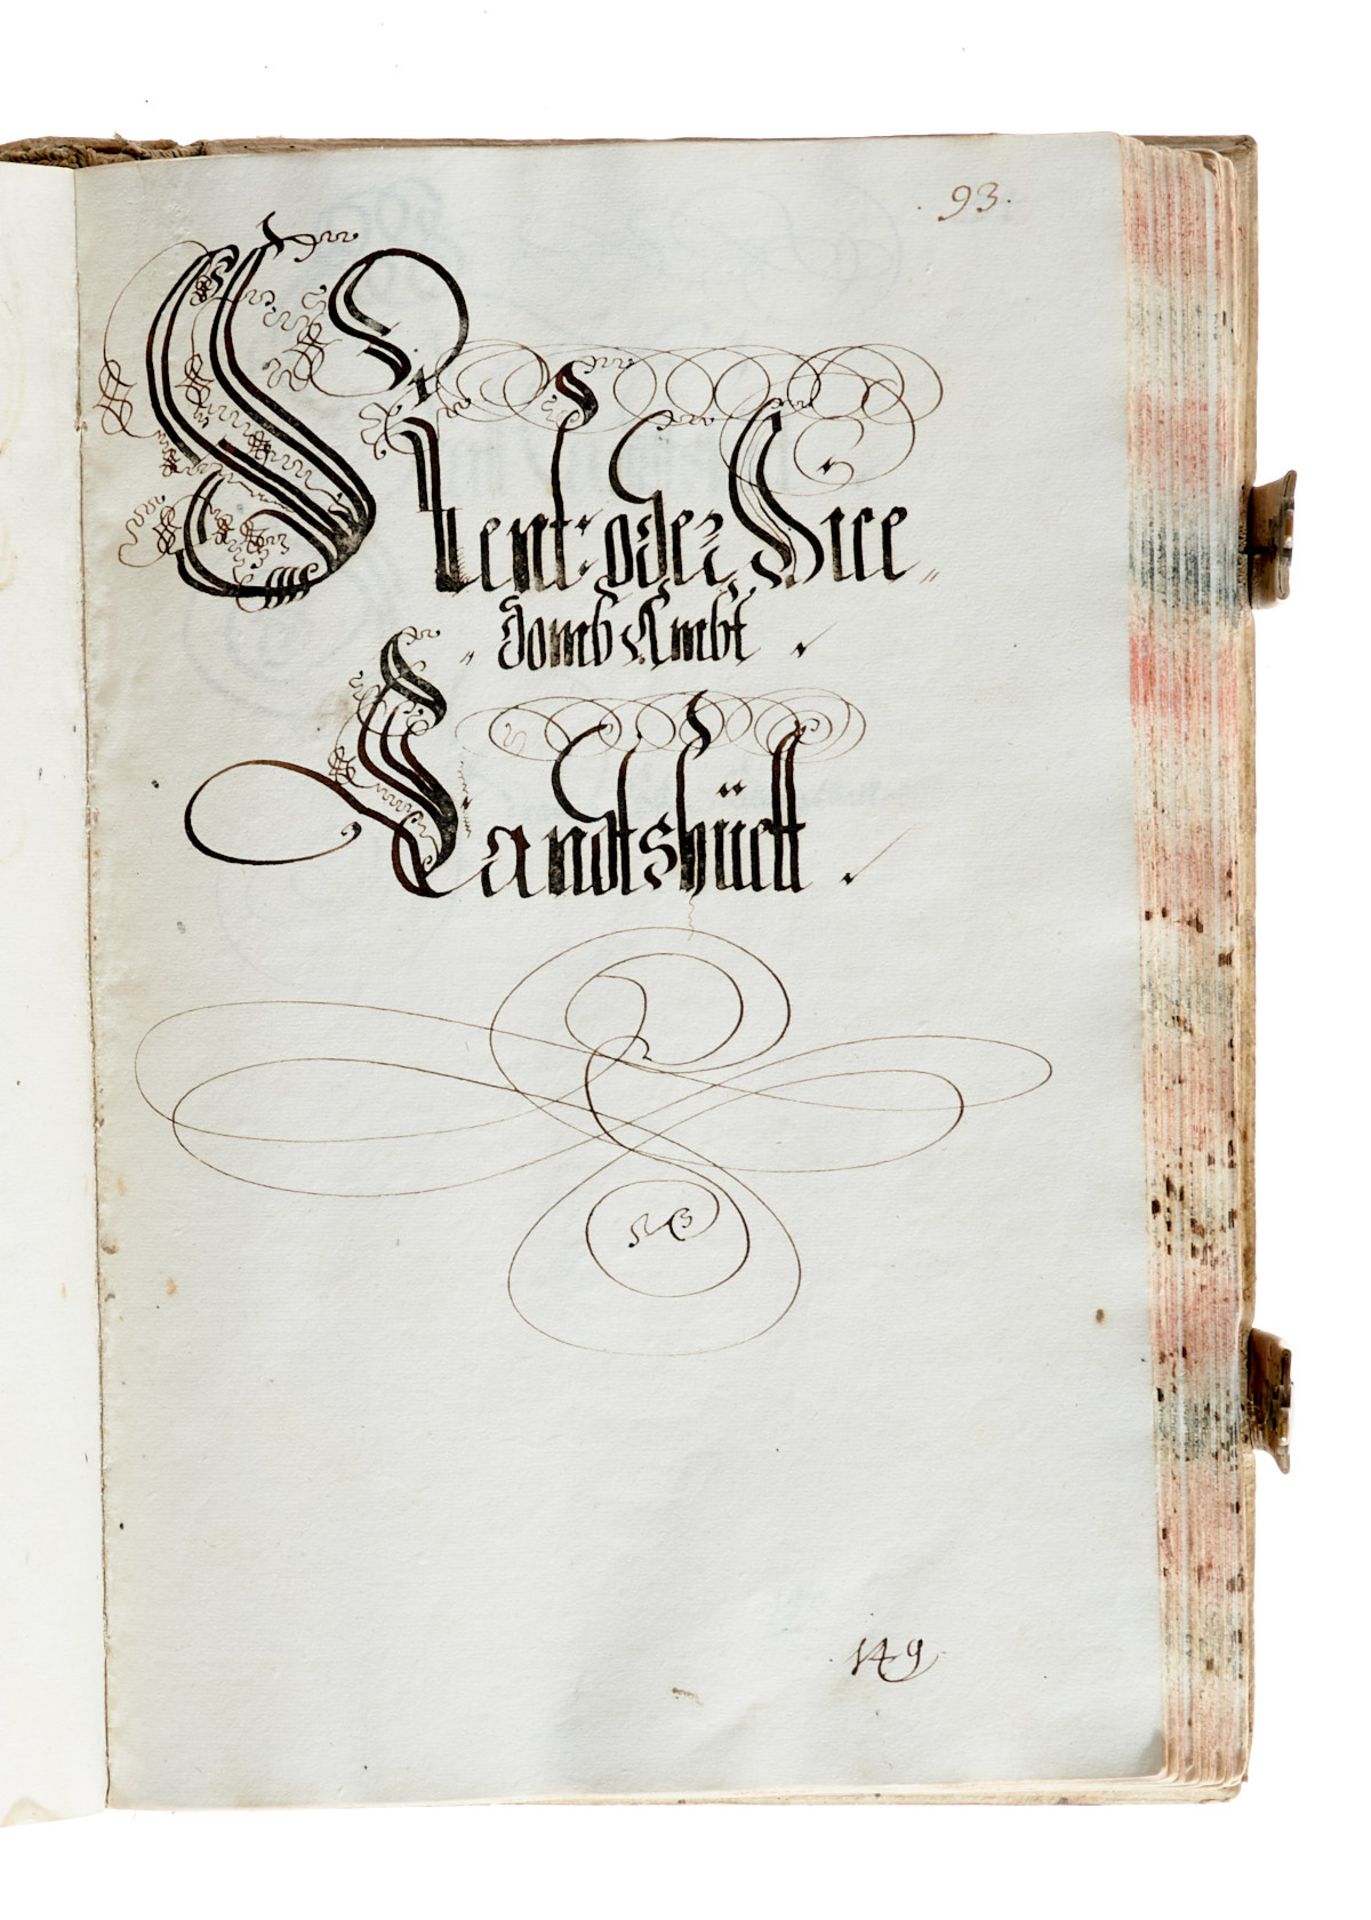 93.
Rent: oder Vice
domb Ambt.
Landtshuett.
149